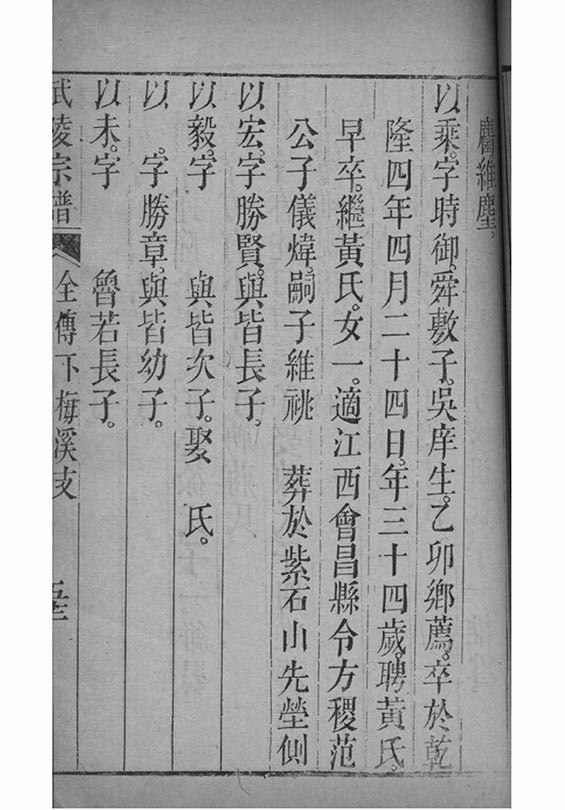 麕維塵。
以乘。字時御。舜敷子。吳庠生。乙卯鄉薦。卒於乾
隆四年四月二十四日。年三十四歲。聘黃氏。
早卒。繼黃氏。女一。適江西會昌縣令方稷范
公子儀煒。嗣子維祧　葬於紫石山先塋側
以宏。字勝賢。與皆長子。
以毅。字　與皆次子。娶　氏。
以　。字勝章。與皆幼子。
以未。字　魯若長子。
武陵宗譜　全傳下梅溪支　五三